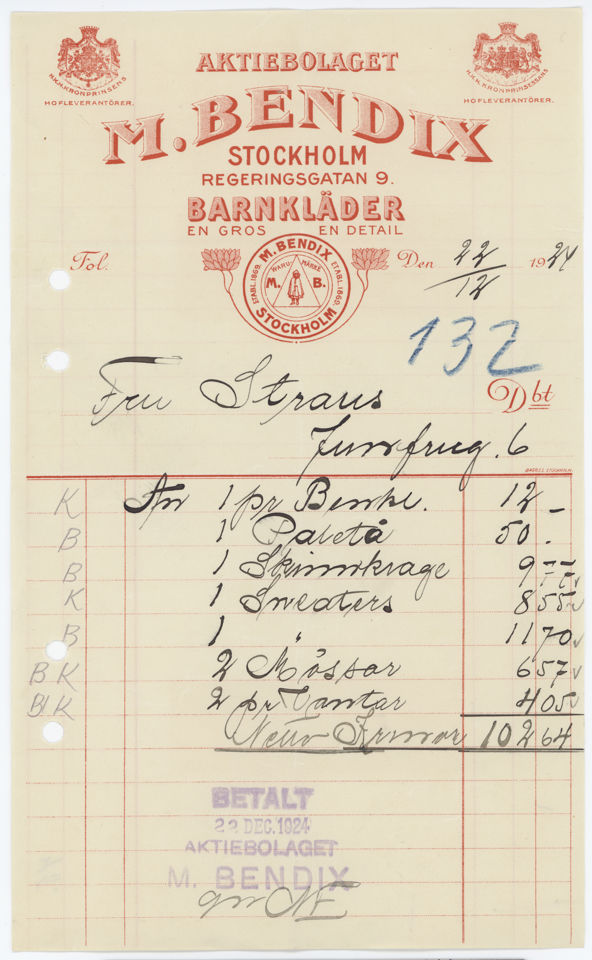 AKTIEBOLAGET
H.K.H. KRONPRINSENS
HOFLEVERANTÖRER.
H.K.H. KRONPRINSESSANS
HOFLEVERANTÖRER.
M. BENDIX
STOCKHOLM
REGERINGSGATAN 9.
BARNKLÄDER
EN GROS EN DETAIL
M. BENDIX
ETABL. 1869. ETABL. 1869.
WARU- MÄRKE
M. B.
STOCKHOLM
Fol. Den 22/12 1924
132
Fru Straus Dbt
Jungfrug. 6
K An 1 pr Benkl. 12 -
B 1 Paletå 50 .
B 1 Skinnkrage 9
K 1 Sweaters 8 55
B 1 " 11 70
B K 2 Mössor 6 57
B K 2 pr Vantar 4 05
Netto Kronor 102 64
BETALT
22 DEC. 1924
AKTIEBOLAGET
M. BENDIX